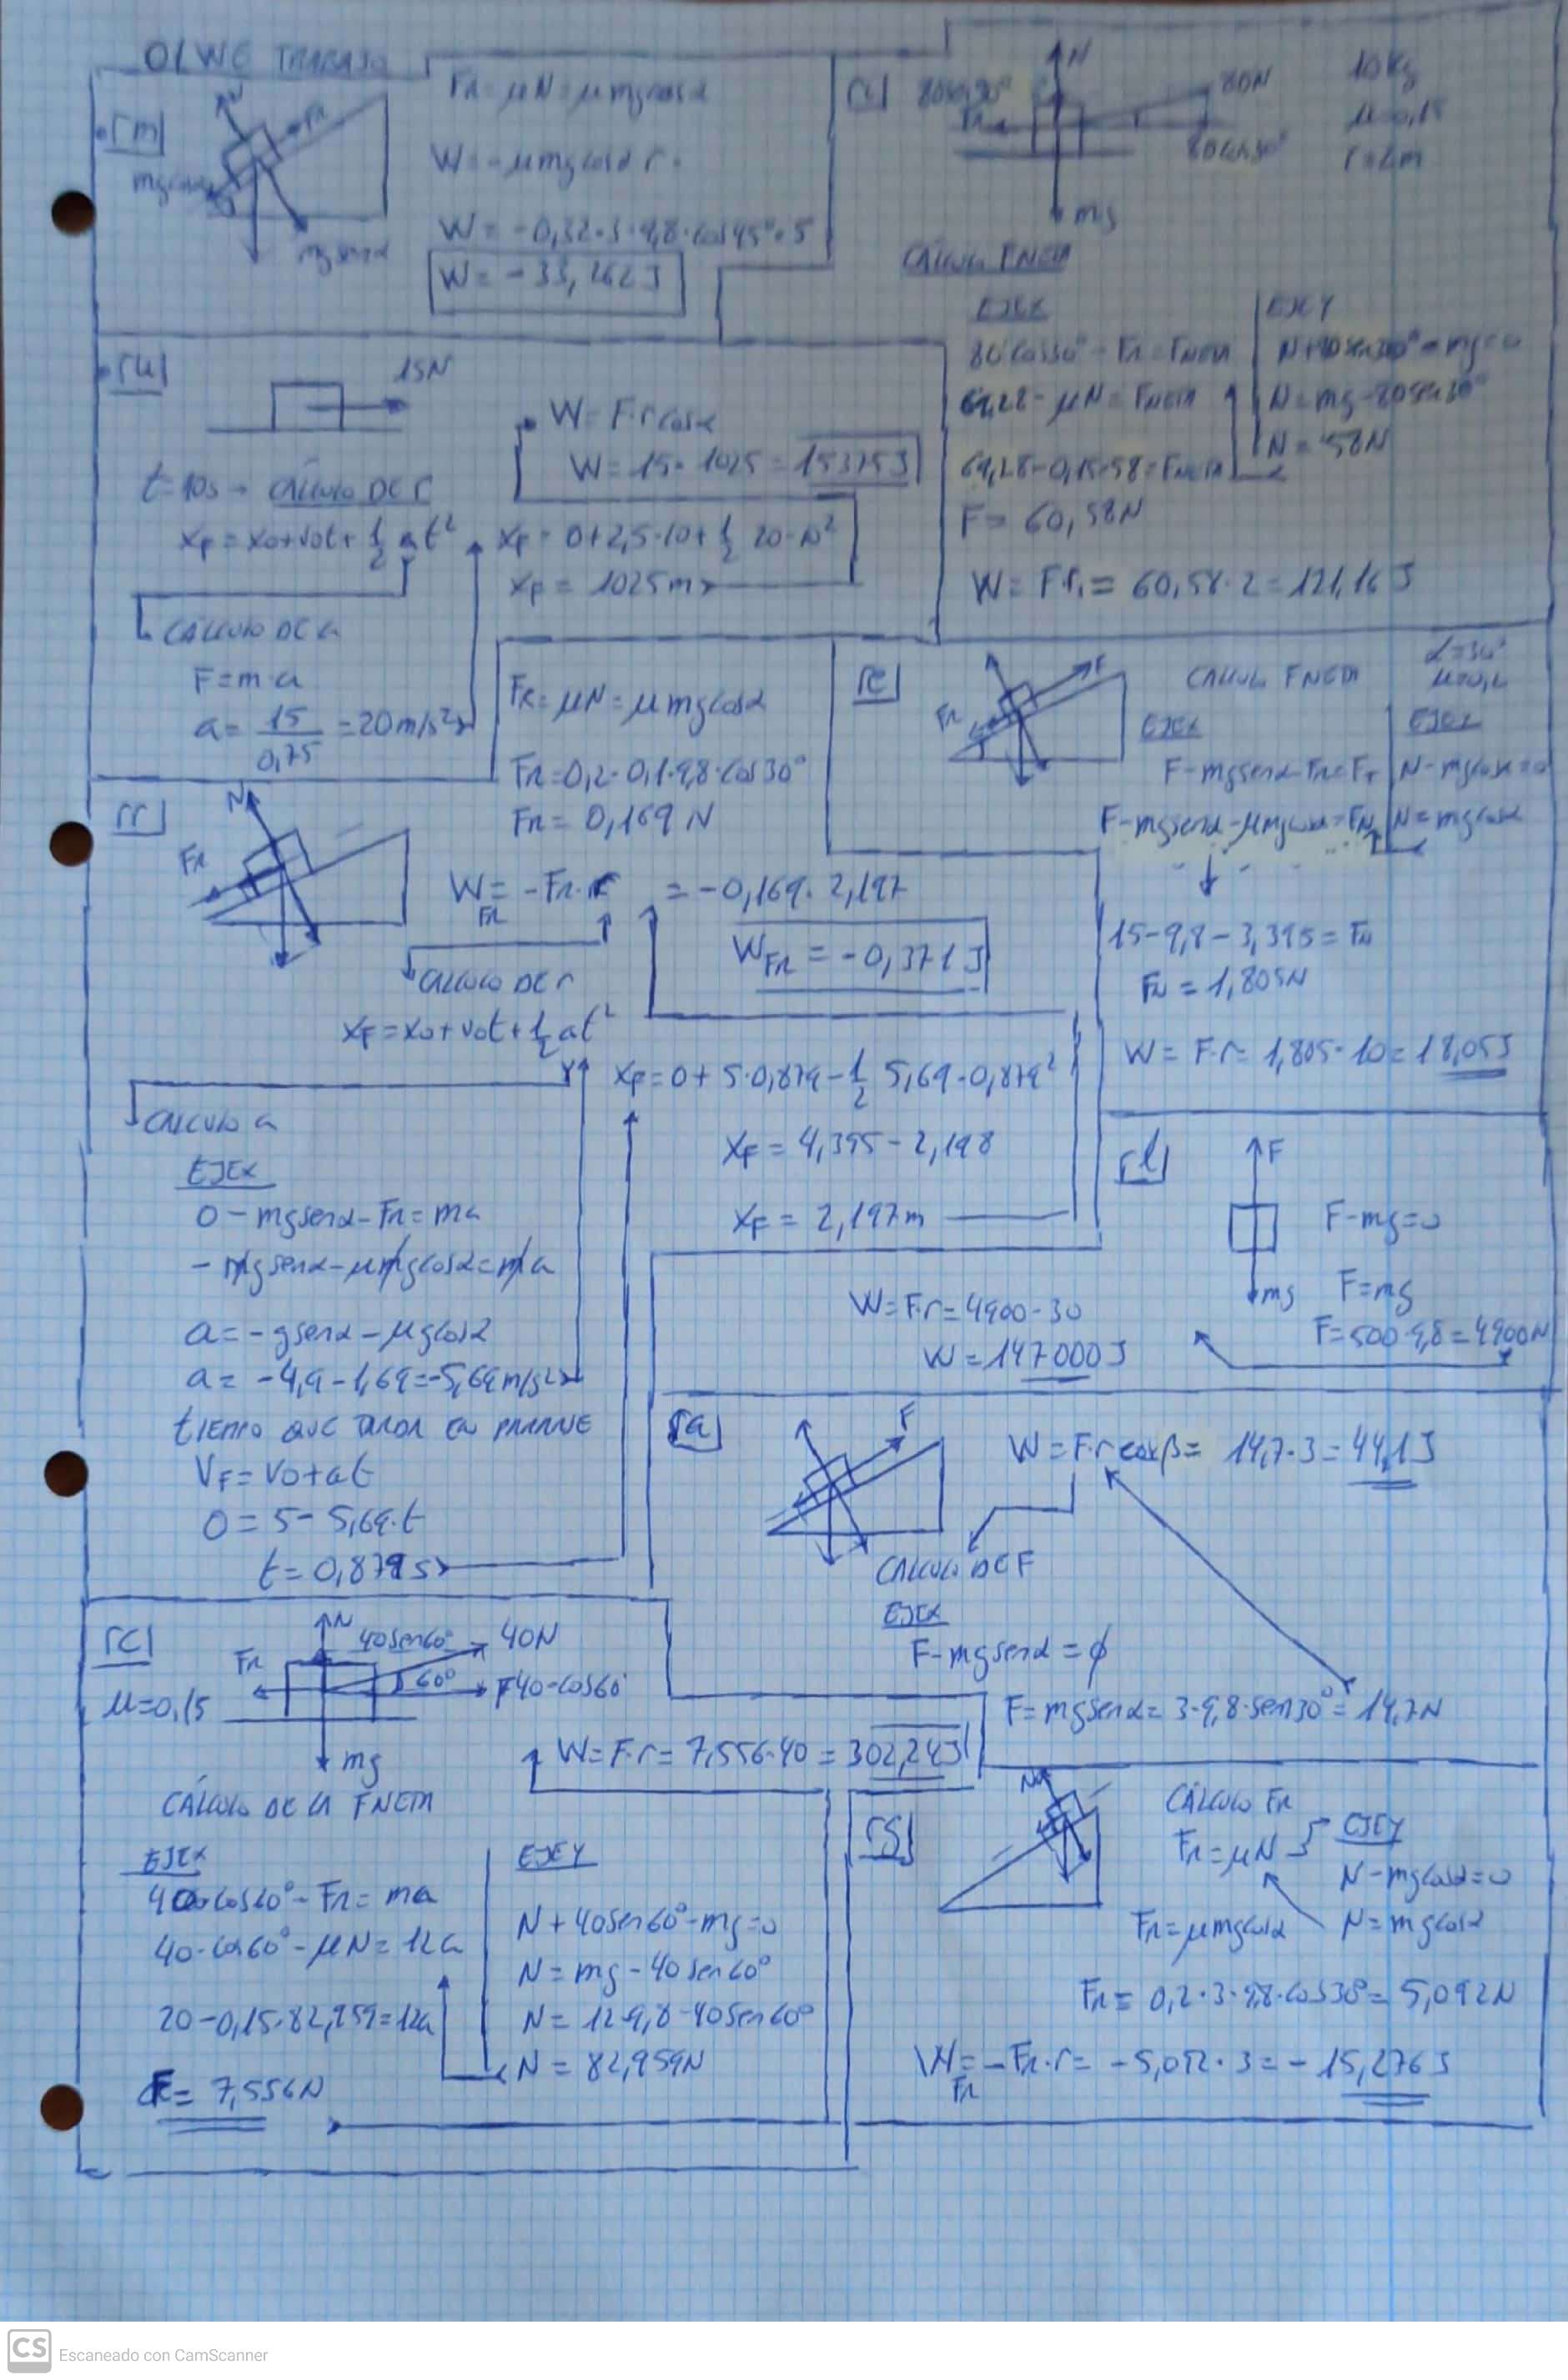 OLWG TRABAJO
[m]
N
Fr
mgcosα
mgsenα
Fr = μN = μmgcosα
W = -μmgcosα r
W = -0,32·3·9,8·cos45°·5
W = -33,262J
N
80N
80cos30°
mg
10Kg
μ=0,15
r=2m
CÁLCULO FNETA
EJEX
80cos30° - Fr = FNETA
69,28 - μN = FNETA
69,28-0,15·58 = FNETA
F = 60,58N
EJEY
N+80sen30°-mg=0
N=mg-80sen30°
N = 58N
W = F·r = 60,58·2 = 121,16J
[u]
15N
t=10s → CÁLCULO DE r
xF = x0+v0t+1/2 at²
W = F·r cosα
W = 15·1025 = 15375J
xF = 0+2,5·10+1/2 20·10²
xF = 1025m
CÁLCULO DE a
F=m·a
a = 15/0,75 = 20m/s²
[r]
N
Fr
Fr = μN = μmgcosα
Fr = 0,2·0,1·9,8·cos30°
Fr = 0,169N
W Fr = -Fr·r = -0,169·2,197
WFr = -0,371J
CÁLCULO DE r
xF = x0+v0t+1/2 at²
xF = 0+5·0,879-1/2 5,69·0,879²
xF = 4,395-2,198
xF = 2,197m
CALCULO a
EJEX
0-mgsenα-Fr = ma
-mgsenα-μmgcosα = ma
a = -gsenα-μgcosα
a = -4,9-1,69 = -5,69m/s²
TIEMPO QUE TARDA EN PARARSE
VF = V0+at
0 = 5-5,69·t
t = 0,879s
[e]
F
Fr
CALCULO FNETA
α=30°
μ=0,2
EJEX
F-mgsenα-Fr = FT
F-mgsenα-μmgcosα = FN
EJEY
N-mgcosα=0
N=mgcosα
15-9,8-3,395 = FN
FN = 1,805N
W = F·r = 1,805·10 = 18,05J
[l]
F
mg
F-mg=0
F=mg
F=500·9,8=4900N
W=F·r=4900·30
W=147000J
[a]
F
W = F·r cosβ = 14,7·3 = 44,1J
CALCULO DE F
EJEX
F-mgsenα = ϕ
F=mgsenα = 3·9,8·sen30° = 14,7N
[c]
μ=0,15
N
Fr
40sen60°
40N
60°
F40·cos60
mg
W=F·r = 7,556·40 = 302,24J
CÁLCULO DE LA FNETA
EJEX
40·cos60°-Fr = ma
40·cos60°-μN = 12a
20-0,15·82,959=12a
F = 7,556N
EJEY
N+40sen60°-mg=0
N = mg-40sen60°
N = 12·9,8-40sen60°
N = 82,959N
[s]
N
CÁLCULO Fr
Fr=μN
Fr=μmgcosα
EJEY
N-mgcosα=0
N=mgcosα
Fr = 0,2·3·9,8·cos30° = 5,092N
W Fr = -Fr·r = -5,092·3 = -15,276J
CS Escaneado con CamScanner